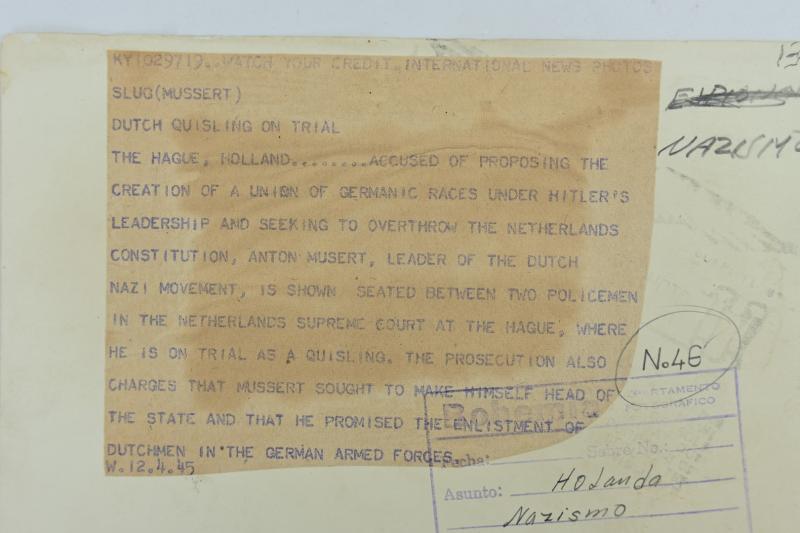 KY1029719..WATCH YOUR CREDIT..INTERNATIONAL NEWS PHOTOS
SLUG(MUSSERT)
DUTCH QUISLING ON TRIAL
THE HAGUE, HOLLAND........ACCUSED OF PROPOSING THE
CREATION OF A UNION OF GERMANIC RACES UNDER HITLER'S
LEADERSHIP AND SEEKING TO OVERTHROW THE NETHERLANDS
CONSTITUTION, ANTON MUSERT, LEADER OF THE DUTCH
NAZI MOVEMENT, IS SHOWN SEATED BETWEEN TWO POLICEMEN
IN THE NETHERLANDS SUPREME COURT AT THE HAGUE, WHERE
HE IS ON TRIAL AS A QUISLING. THE PROSECUTION ALSO
CHARGES THAT MUSSERT SOUGHT TO MAKE HIMSELF HEAD OF
THE STATE AND THAT HE PROMISED THE ENLISTMENT OF
DUTCHMEN IN THE GERMAN ARMED FORCES
W.12.4.45
13
NAZISMO
No.46
Bohemia
Fecha: Sobre No.:
Asunto: Holanda
Nazismo